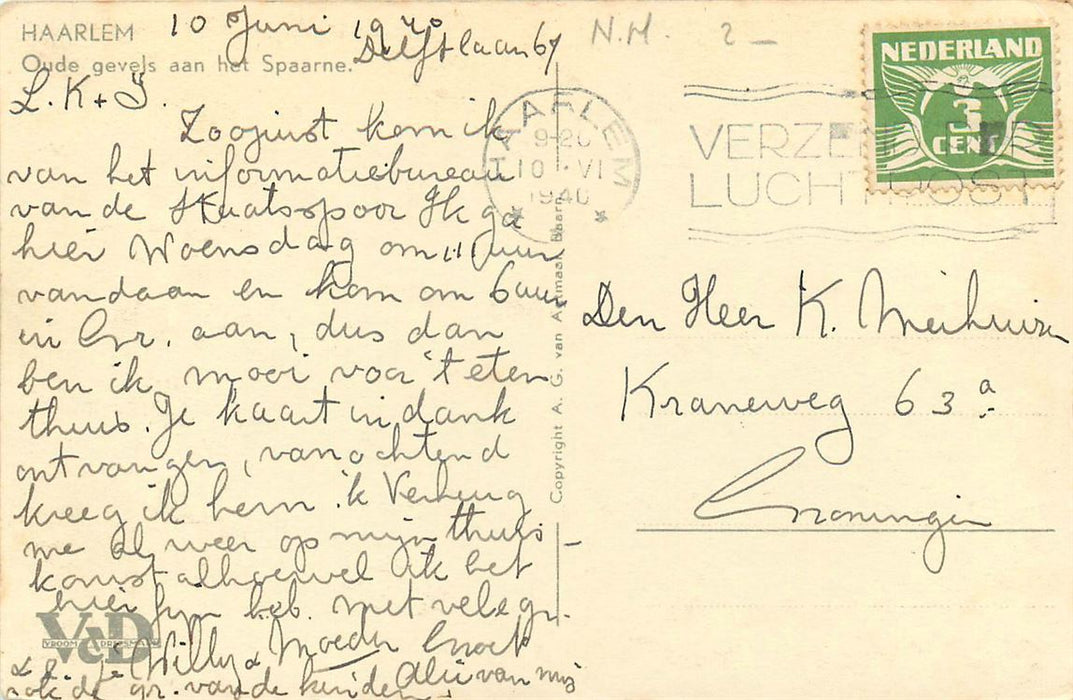 HAARLEM 10 Juni 1940
Delftlaan 67
Oude gevels aan het Spaarne.
L. K + J.
Zoojuist kom ik
van het informatiebureau
van de Staatsspoor Ik ga
hier Woensdag om 11 uur
vandaan en kom om 6 uur
in Gr. aan, dus dan
ben ik mooi voor 't eten
thuis. Je kaart in dank
ontvangen, vanochtend
kreeg ik hem. ik Verheug
me al weer op mijn thuis-
komst alhoewel ik het
hier fijn heb. met vele gr.
Willy & Moeder
ook de gr. van de kinderen
Alie van mij
V&D
VROOM & DREESMANN
Copyright A. G. van Agtmaal Baarn
N.H. 2 –
HAARLEM
9-20
10 · VI
1940
VERZEND PER
LUCHTPOST
NEDERLAND
3
CENT
Den Heer K. Meihuizen
Kraneweg 63 a
Groningen